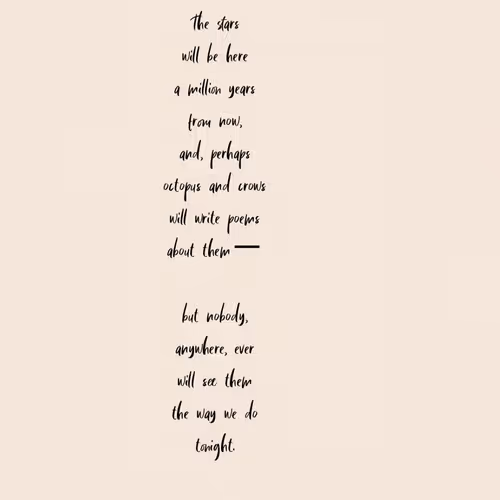 The stars
will be here
a million years
from now,
and, perhaps
octopus and crows
will write poems
about them —
but nobody,
anywhere, ever
will see them
the way we do
tonight.